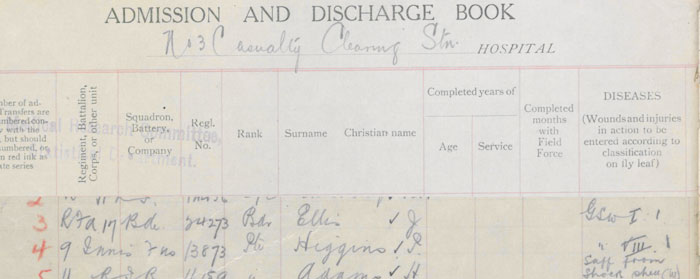 ADMISSION AND DISCHARGE BOOK
No 3 Casualty Clearing Stn. HOSPITAL
ber of ad-
Transfers are
mbered con-
y with the
, but should
umbered, or
n red ink as
ate series
Regiment, Battalion,
Corps, or other unit
Squadron,
Battery,
or
Company
Regl.
No.
Rank
Surname
Christian name
Completed years of
Age
Service
Completed
months
with
Field
Force
DISEASES
(Wounds and injuries
in action to be
entered according to
classification
on fly leaf)
Research Committee,
3 RFA 17 Bde 24273 Bdr Ellis ✓ J GSW I. 1
4 9 Innis Fus 13873 Pte Higgins ✓ " VIII. 1
5 11 " Adam ✓ H Suff from
Shock shell